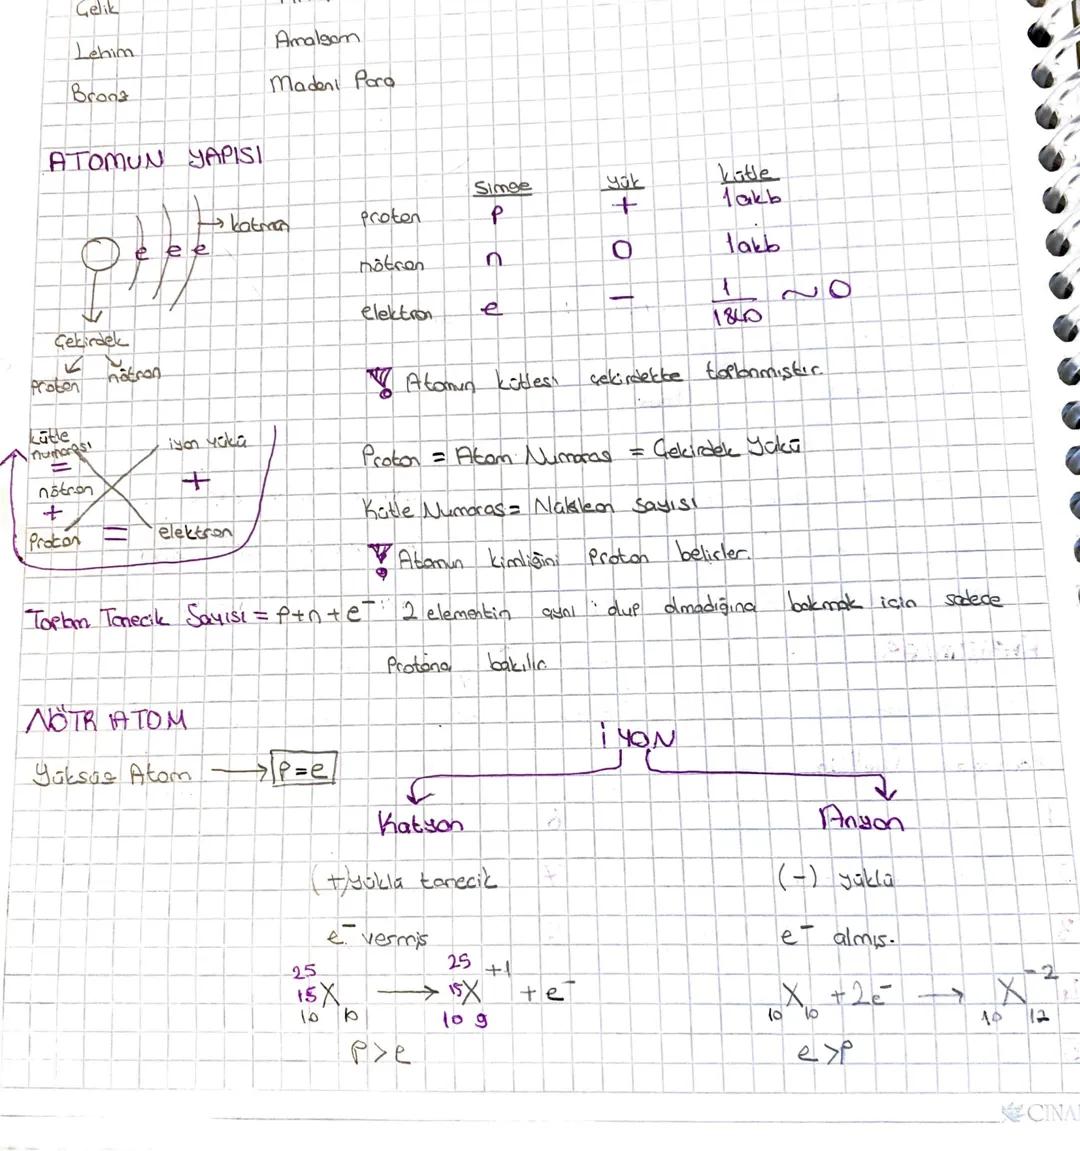 Çelik
Lehim Amalgam
Bronz Madeni Para
ATOMUN YAPISI
Simge Yük kütle
proton p + 1akb
nötron n 0 1akb
elektron e – 1/1840 ~0
e e e → katman
Çekirdek
Proton nötron
! Atomun kütlesi çekirdekte toplanmıştır.
kütle numarası iyon yükü
= +
nötron
+
Proton = elektron
Proton = Atom Numarası = Çekirdek Yükü
Kütle Numarası = Nükleon Sayısı
! Atomun kimliğini Proton belirler.
Toplam Tanecik Sayısı = p+n+e⁻ 2 elementin aynı olup olmadığına bakmak için sadece
Protona bakılır.
NÖTR ATOM
Yüksüz Atom → p=e
İYON
Katyon Anyon
(+) yüklü tanecik (-) yüklü
e⁻ vermiş e⁻ almış.
25 25 +1
15 X → 15 X + e⁻ X + 2e⁻ → X⁻²
10 10 10 9 10 10 10 12
p>e e>p
ÇINA